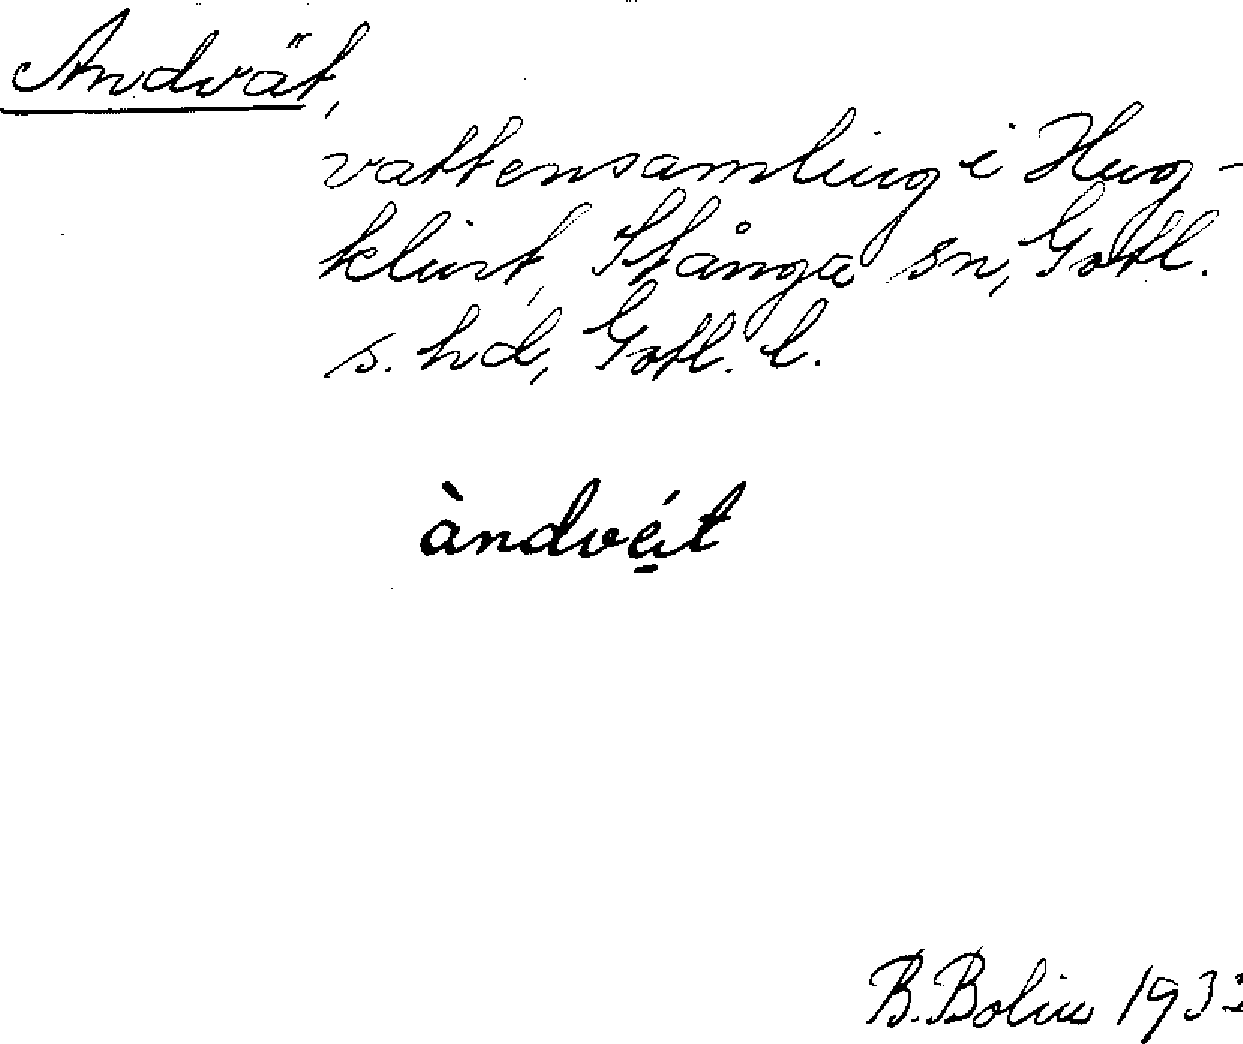 Andvät,
vattensamling i Hug-
klint, Stånga sn, Gotl.
s. hd, Gotl. l.
àndvé̱t
B. Bolin 193